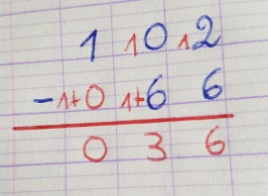 1 10 12
- 1+0 1+6 6
0 3 6